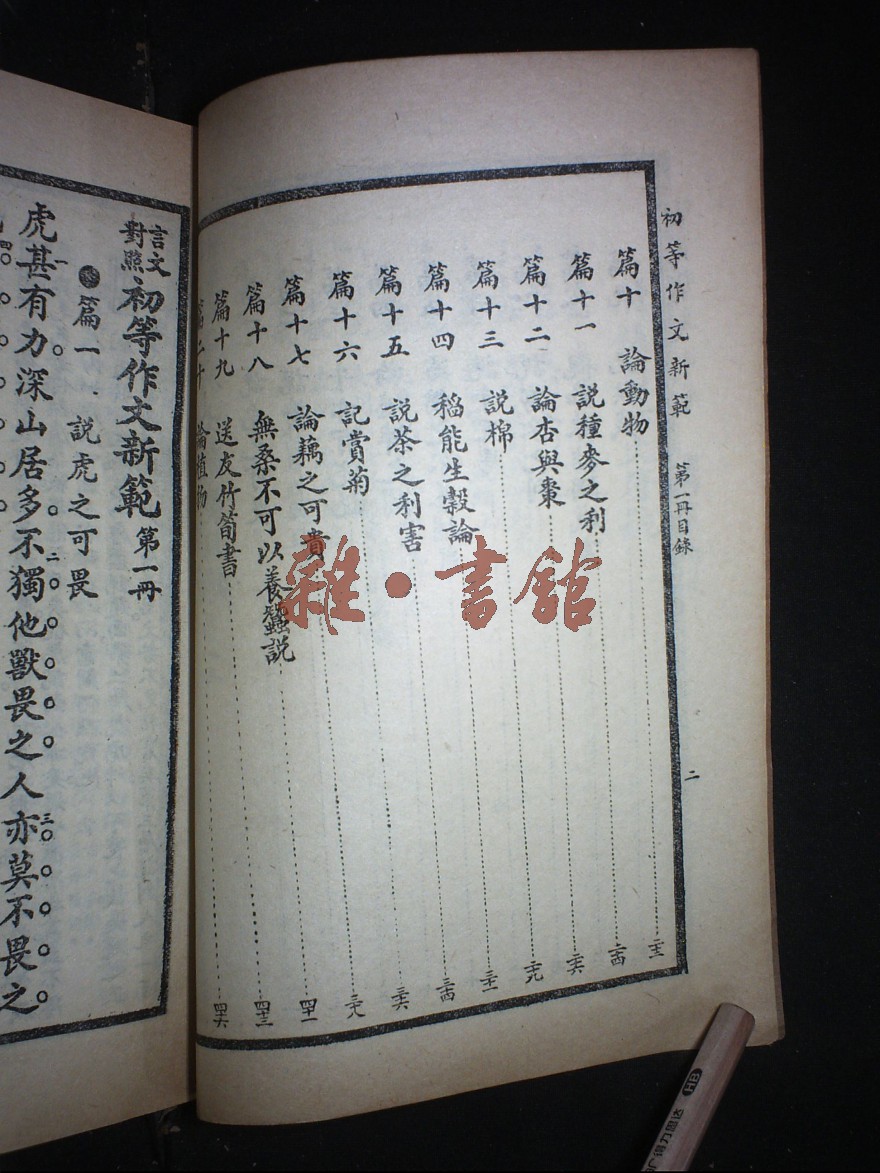 初等作文新範 第一冊目錄
二
篇十 論動物 二十三
篇十一 說種麥之利 二十四
篇十二 論杏與棗 二十六
篇十三 說棉 二十九
篇十四 稻能生穀論 三十一
篇十五 說茶之利害 三十四
篇十六 記賞菊 三十六
篇十七 論藕之可貴 三十九
篇十八 無桑不可以養蠶說 四十一
篇十九 送友竹筍書 四十三
篇二十 論植物 四十六
言文對照 初等作文新範 第一冊
篇一 說虎之可畏
虎甚有力。深山居多。不獨他獸畏之。人亦莫不畏之。
雜·書館
HB
得力思达